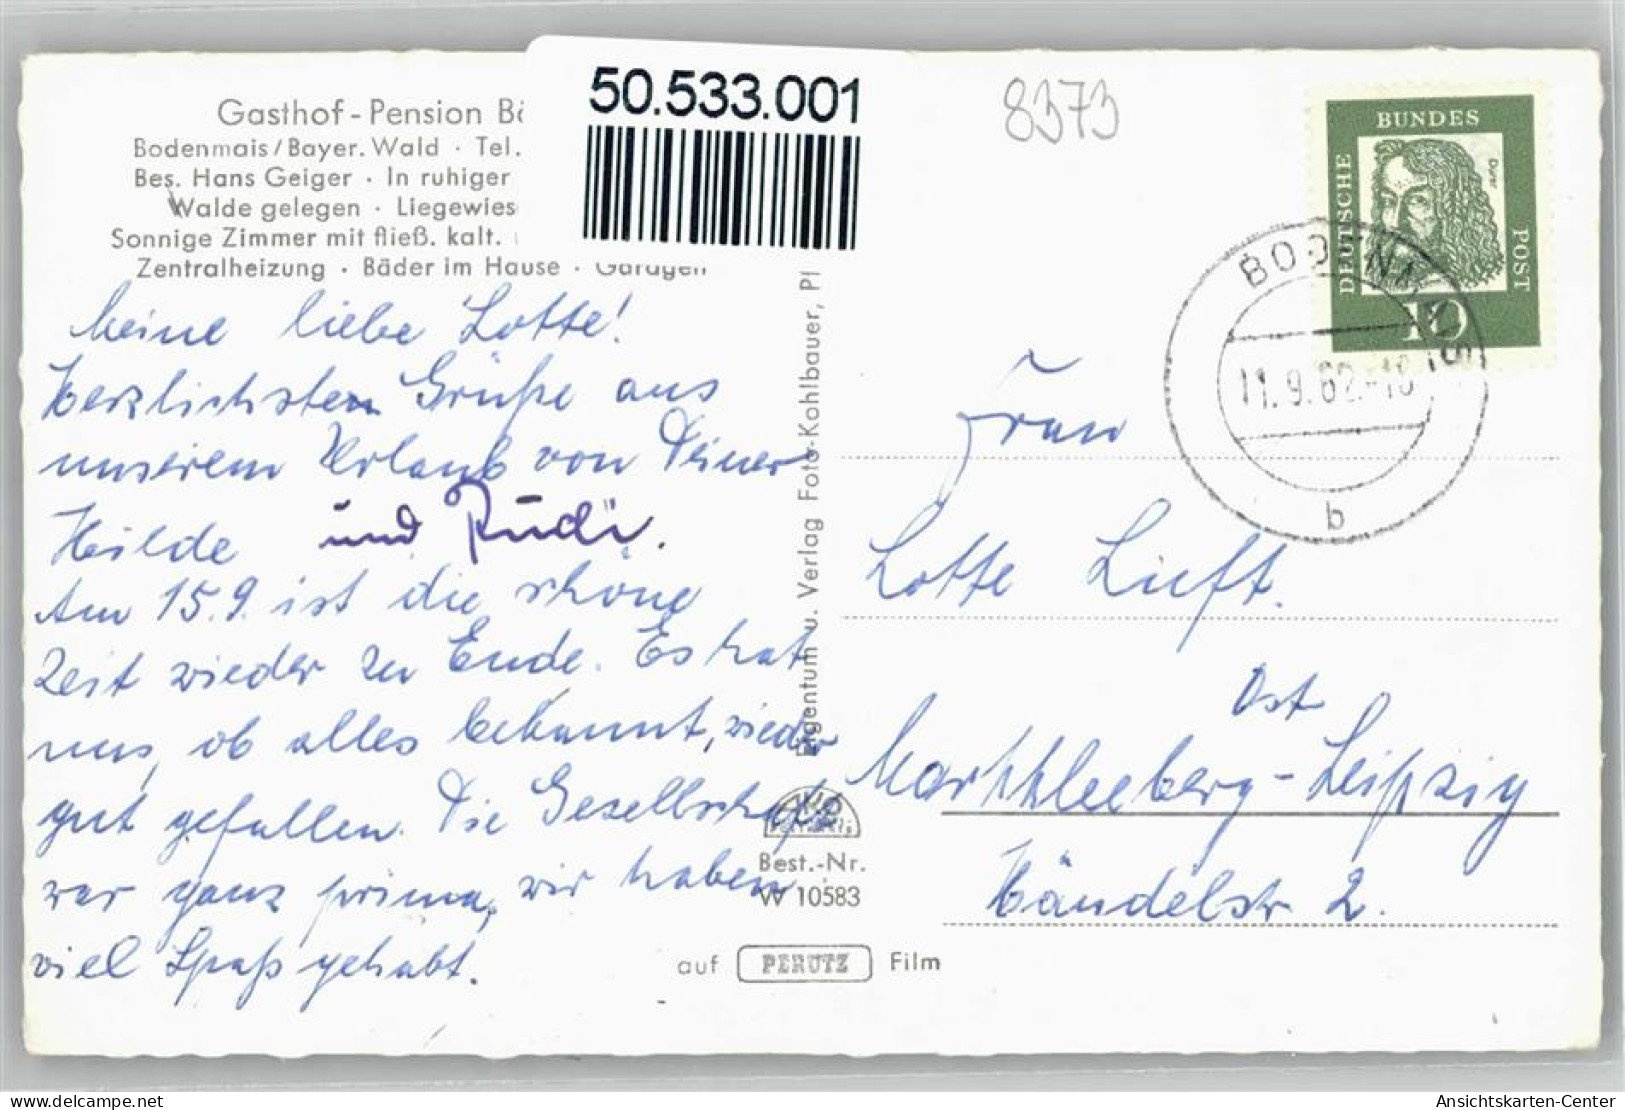 50.533.001
8373
Gasthof-Pension
Bodenmais/Bayer. Wald · Tel.
Bes. Hans Geiger · In ruhiger
Walde gelegen · Liegewies
Sonnige Zimmer mit fließ. kalt.
Zentralheizung · Bäder im Hause · Garagen
Meine liebe Lotte!
Herzlichsten Grüße aus
unserem Urlaub von Deiner
Hilde und Rudi.
Am 15.9. ist die schöne
Zeit wieder zu Ende. Es hat
uns, ob alles bekannt, wieder
gut gefallen. Die Gesellschaft
war ganz prima, wir haben
viel Spaß gehabt.
Eigentum u. Verlag Foto-Kohlbauer, Pf
Best.-Nr.
W 10583
auf PERUTZ Film
DEUTSCHE BUNDES POST
Dürer
10
BODENMAIS
11.9.62.-18
b
Frau
Lotte Lieft.
Ost
Markkleeberg-Leipzig
Händelstr 2.
www.delcampe.net
Ansichtskarten-Center